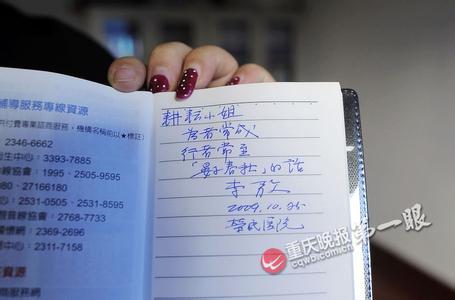 導服務專線資源
付費專業諮商服務,機構名稱前以★標註)
2346-6662
生中心:3393-7885
協會:1995、2505-9595
27166180
中心:2531-0505、2531-8595
線協會:2768-7733
懷網:2369-2696
中心:2311-7158
資源
耕耘小姐
為者常成
行者常至
「晏子春秋」的話
李敖
2009.10.25
榮民医院
重庆晚报 第一眼
www.cqwb.com.cn